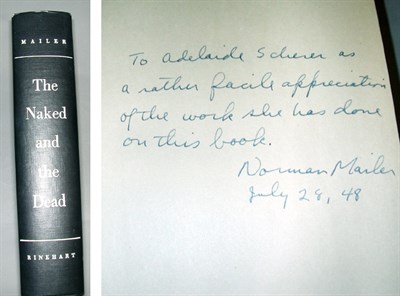 MAILER
The
Naked
and
the
Dead
RINEHART
To Adelaide Scherer as
a rather facile appreciation
of the work she has done
on this book.
Norman Mailer
July 28, 48